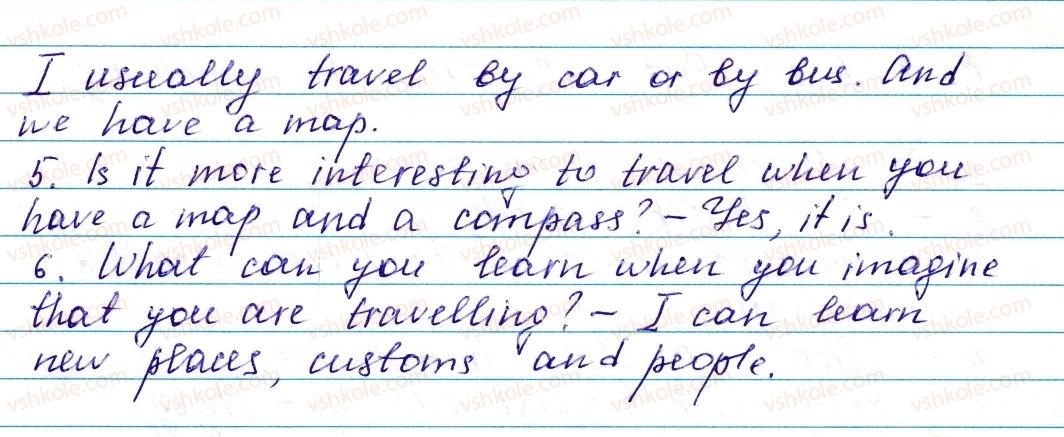 I usually travel by car or by bus. And
we have a map.
5. Is it more interesting to travel when you
have a map and a compass? – Yes, it is.
6. What can you learn when you imagine
that you are travelling? – I can learn
new places, customs and people.